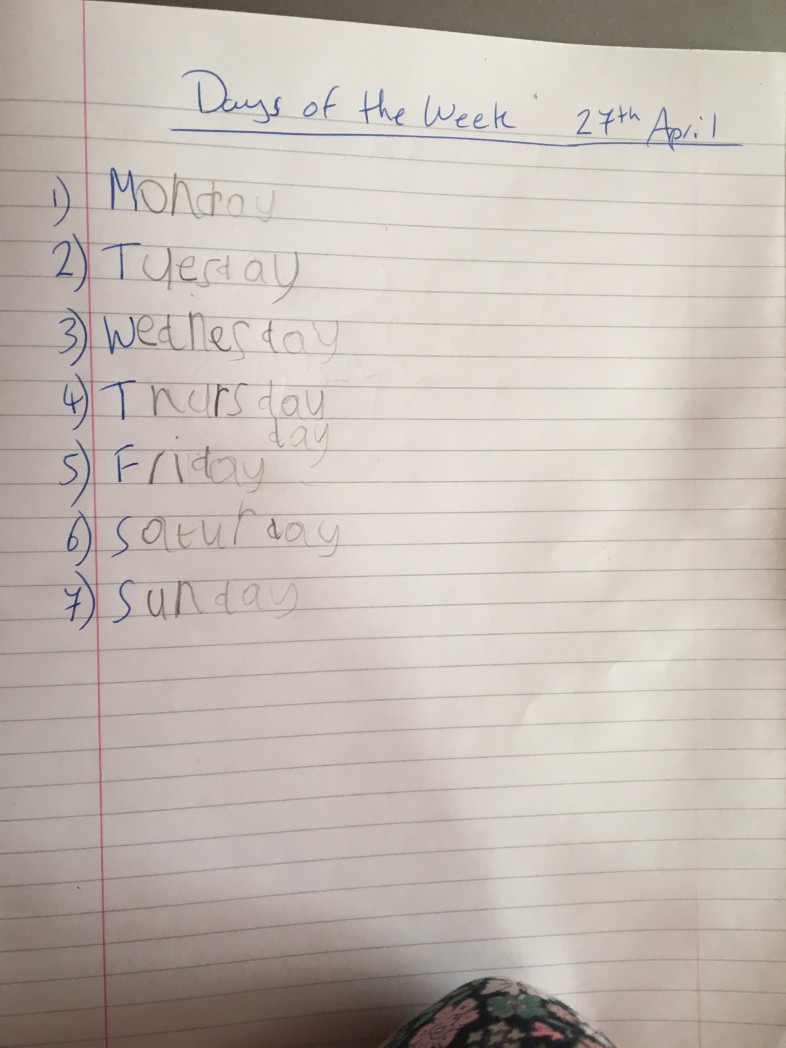 Days of the Week 27th April
1) Monday
2) Tuesday
3) Wednesday
4) Thursday
day
5) Friday
6) Saturday
7) Sunday